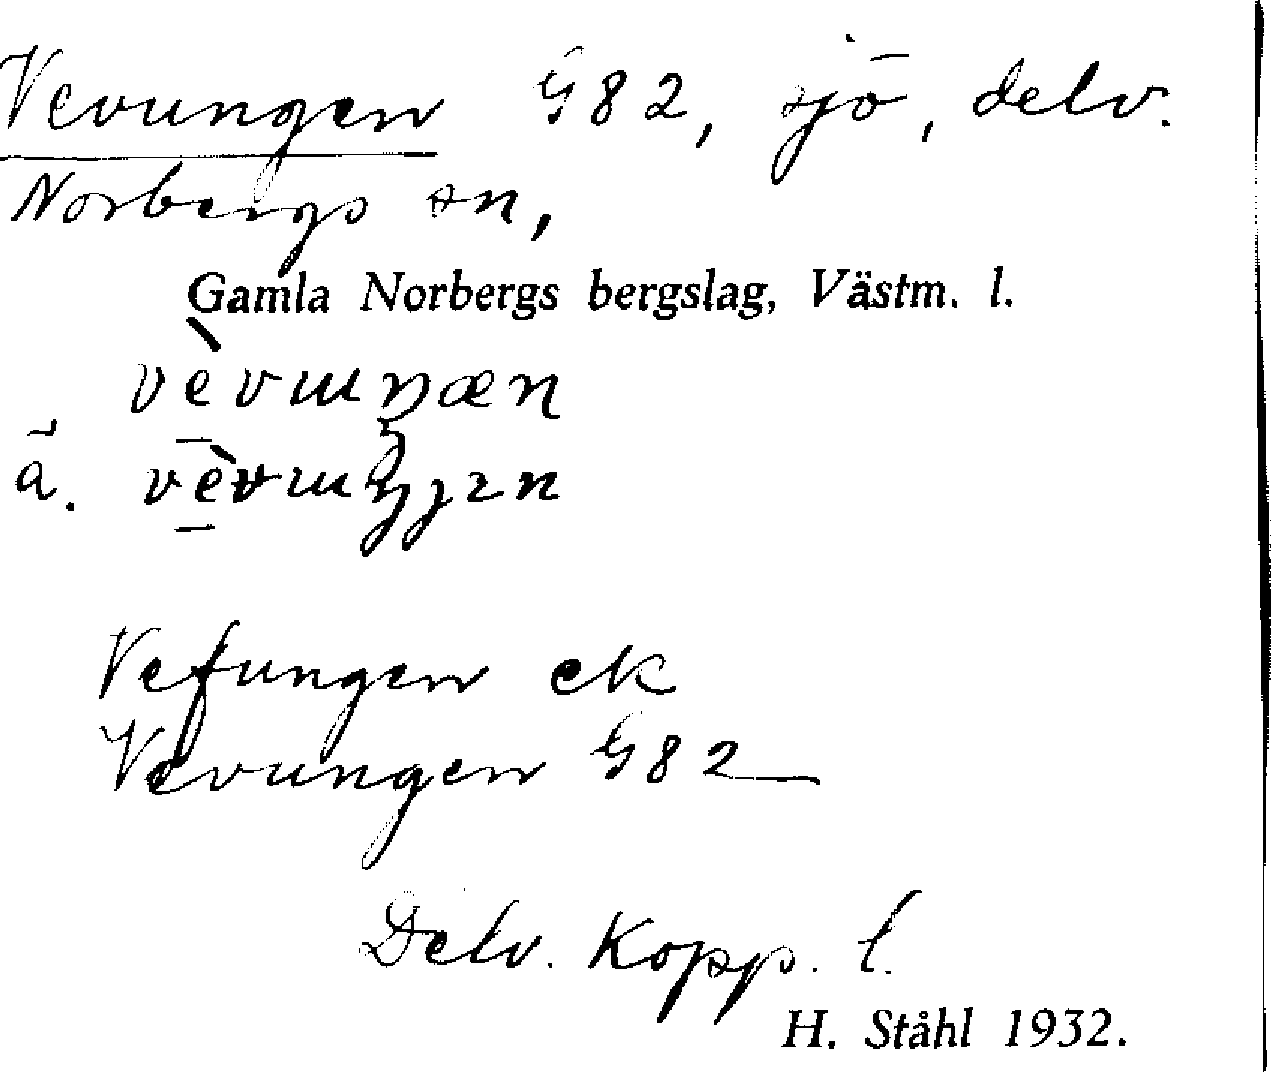 Vevungen G82, sjö, delv.
Norbergs sn,
Gamla Norbergs bergslag, Västm. l.
Vefungen ek
Vevungen G82
Delv. Kopp. l.
H. Ståhl 1932.